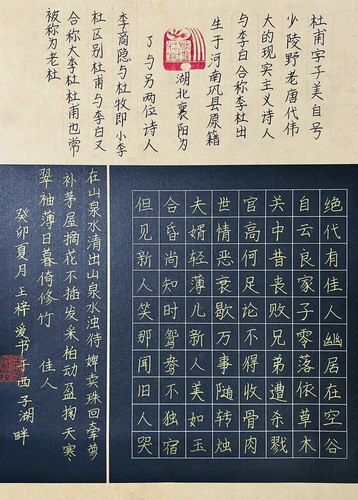 杜甫字子美自号
少陵野老唐代伟
大的现实主义诗人
与李白合称李杜出
生于河南巩县原籍
湖北襄阳为
了与另两位诗人
李商隐与杜牧即小李
杜区别杜甫与李白又
合称大李杜杜甫也常
被称为老杜
绝代有佳人幽居在空谷
自云良家子零落依草木
关中昔丧败兄弟遭杀戮
官高何足论不得收骨肉
世情恶衰歇万事随转烛
夫婿轻薄儿新人美如玉
合昏尚知时鸳鸯不独宿
但见新人笑那闻旧人哭
在山泉水清出山泉水浊侍婢卖珠回牵萝
补茅屋摘花不插发采柏动盈掬天寒
翠袖薄日暮倚修竹 佳人
癸卯夏月王梓书于西子湖畔